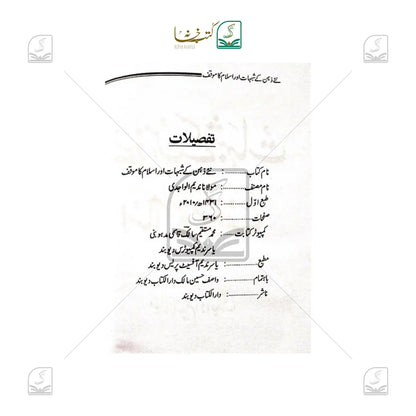 کتب خانہ
نئے ذہن کے شبہات اور اسلام کا موقف
تفصیلات
نام کتاب ............: نئے ذہن کے شبہات اور اسلام کا موقف
نام مصنف ............: مولانا ندیم الواجدی
طبع اوّل ............: ۱۴۳۱ھ/۲۰۱۰ء
صفحات ............: ۳۶۰
کمپیوٹر کتابت ............: محمد مستقیم سالک قاسمی مدہوبنی
یاسر ندیم کمپیوٹرس دیوبند
مطبع ............: یاسر ندیم آفسیٹ پریس دیوبند
باہتمام ............: واصف حسین مالک دارالکتاب دیوبند
ناشر ............: دارالکتاب دیوبند